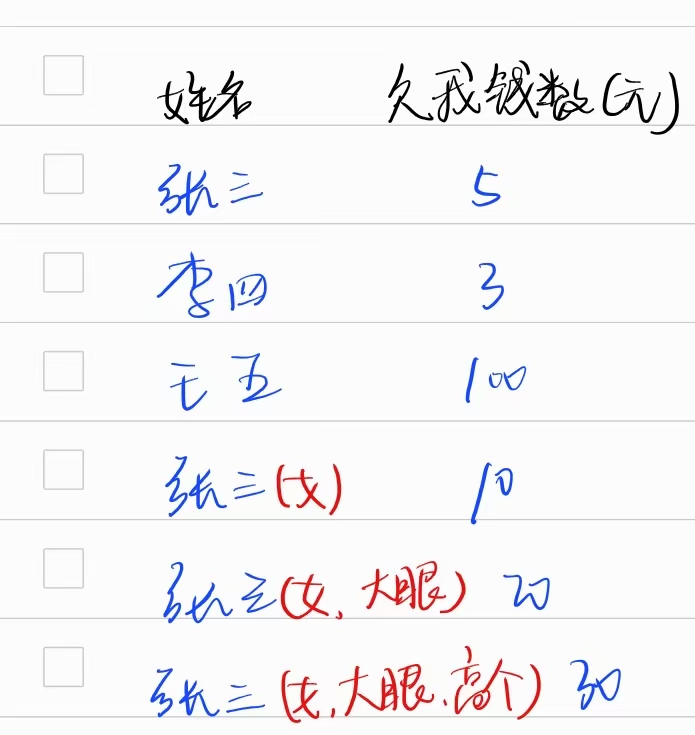 姓名 欠我钱数(元)
张三 5
李四 3
王五 100
张三(女) 10
张三(女,大眼) 20
张三(女,大眼,高个) 30